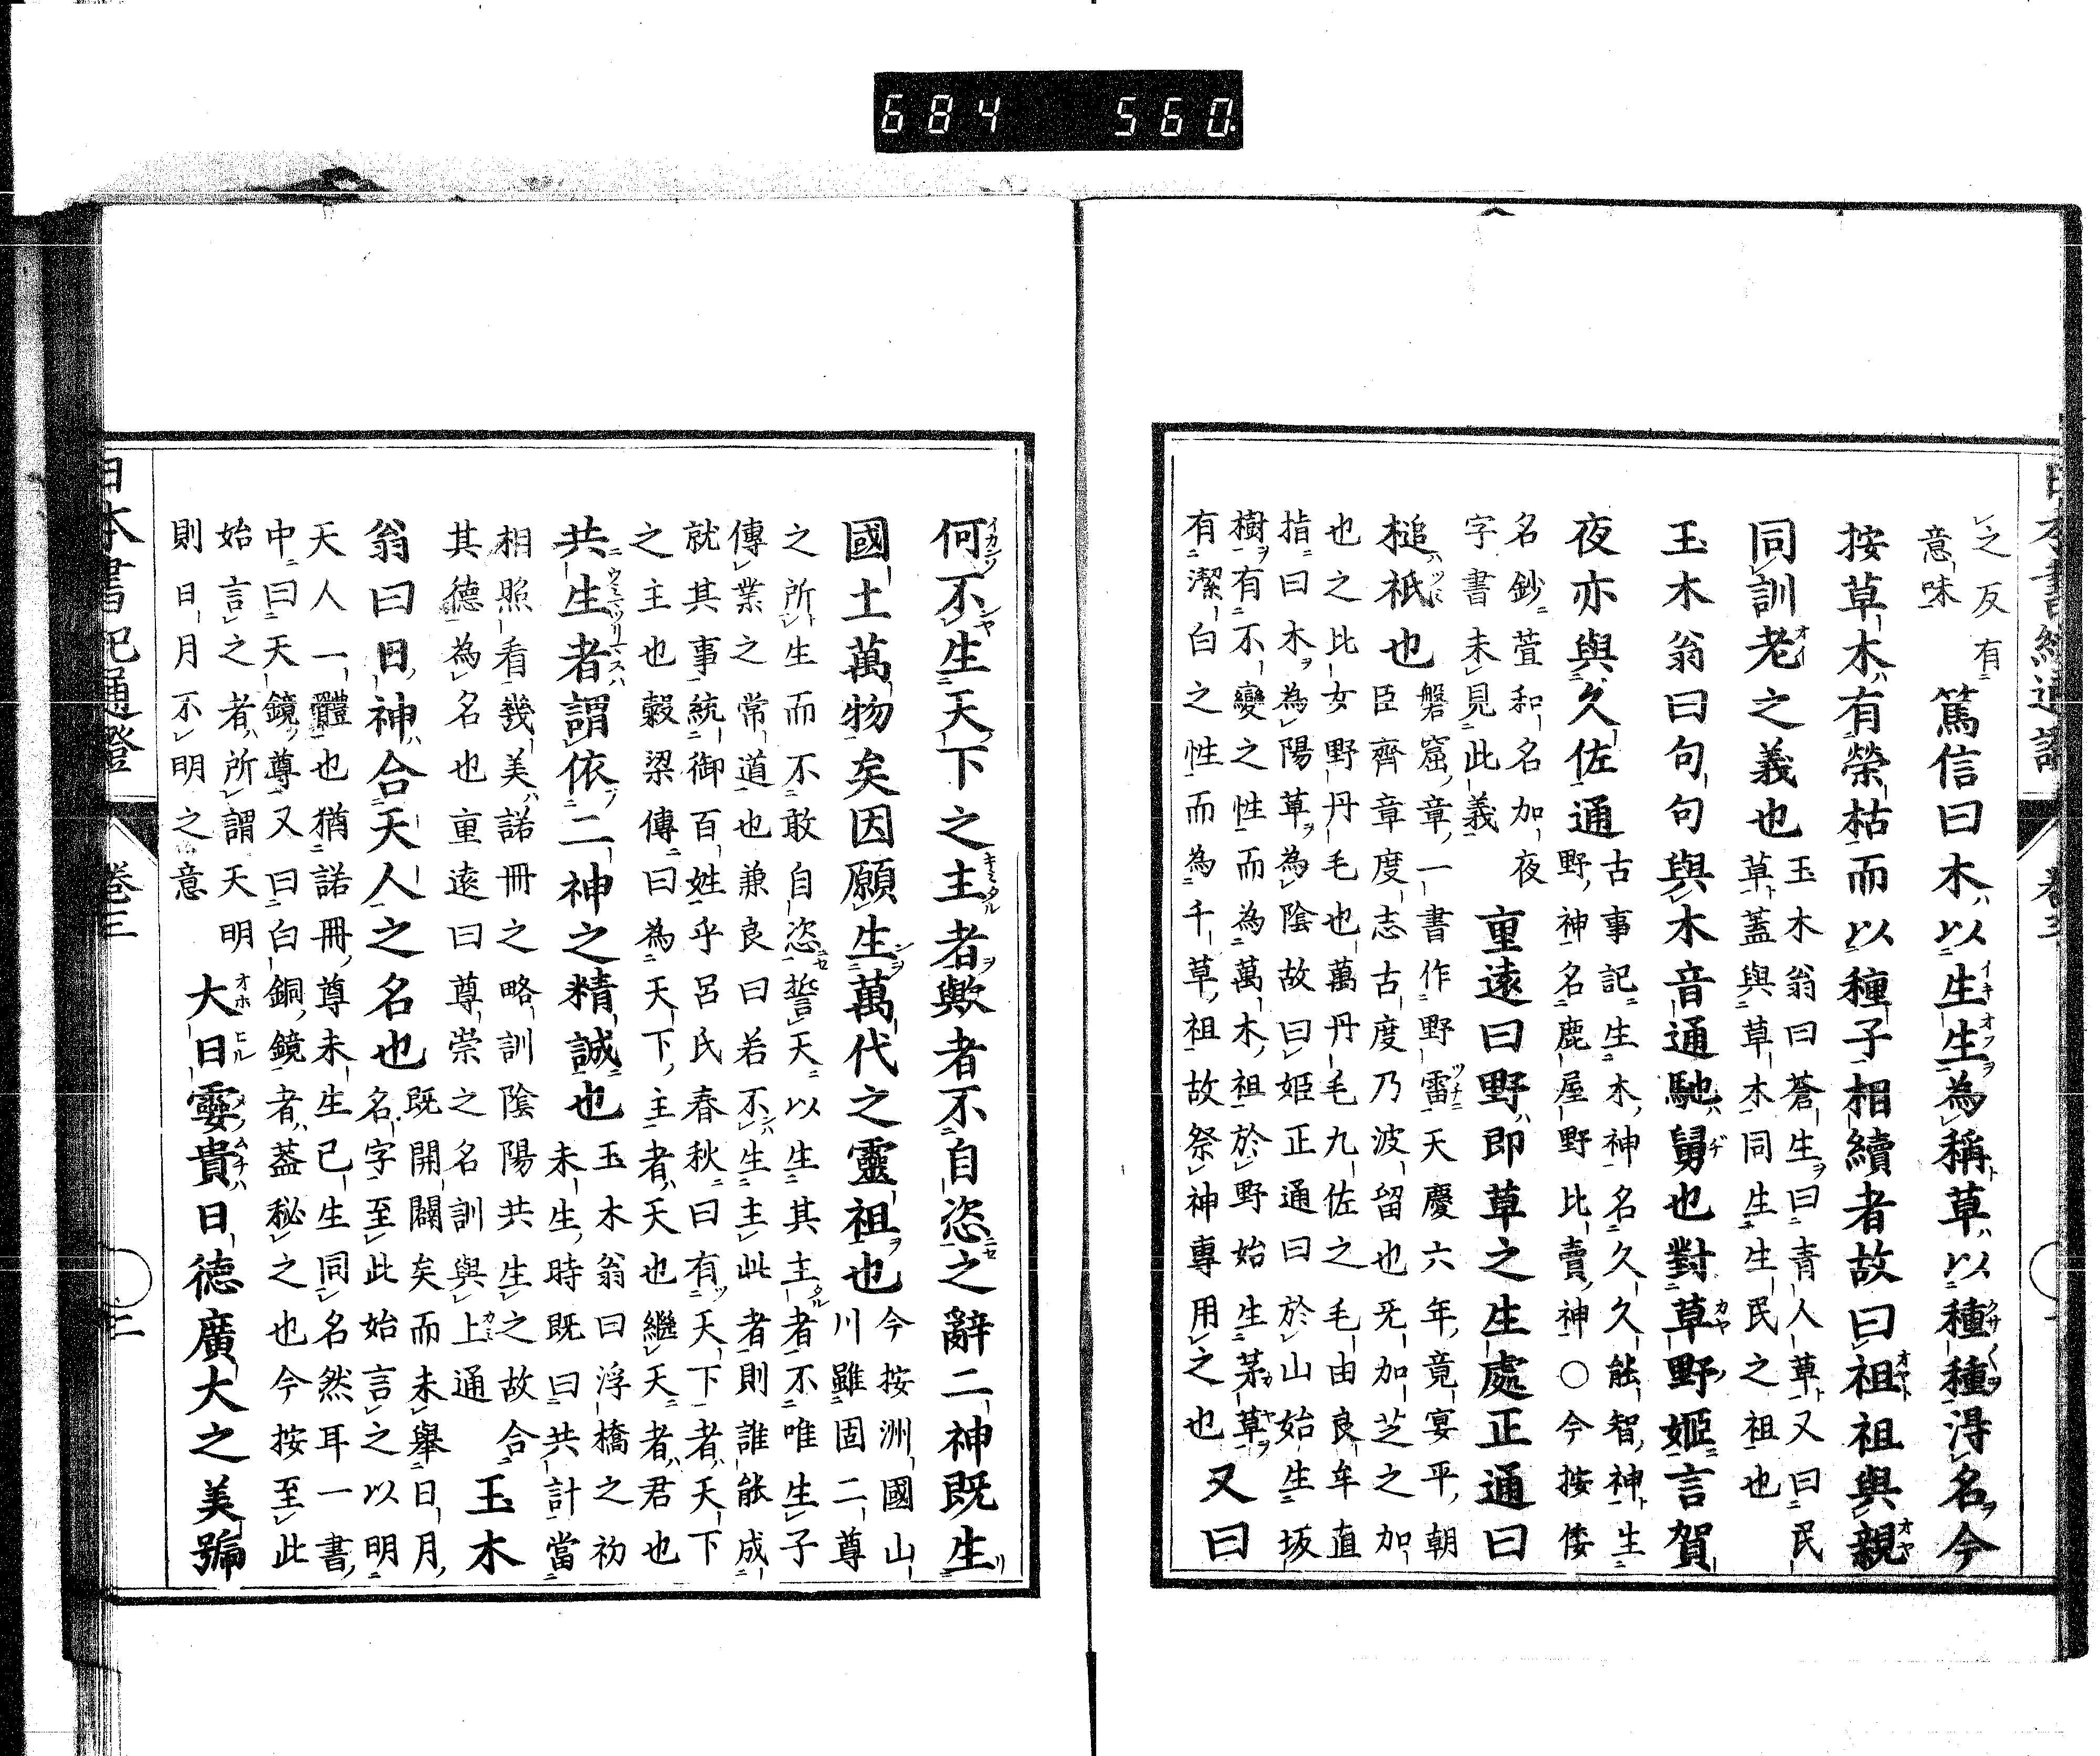 日本書紀通證 卷三
之反有
意味
篤信曰木以生生為稱草以種種得名今
按草木有榮枯而以種子相續者故曰祖祖與親
同訓老之義也
玉木翁曰蒼生曰青人草又曰民
草蓋與草木同生生民之祖也
玉木翁曰句句與木音通馳舅也對草野姬言賀
夜亦與久佐通
古事記生木神名久久能智神生
野神名鹿屋野比賣神○今按倭
名鈔萱和名加夜
字書未見此義
重遠曰野即草之生處正通曰
槌祇也
磐窟章一書作野雷天慶六年竟宴平朝
臣齊章度志古度乃波留也旡加芝之加
也之比女野丹毛也萬丹毛九佐之毛由良牟直
指曰木為陽草為陰故曰姬正通曰於山始生坂
樹有不變之性而為萬木祖於野始生茅草
有潔白之性而為千草祖故祭神專用之也
又曰
何不生天下之主者歟者不自恣之辭二神既生
國土萬物矣因願生萬代之靈祖也
今按洲國山
川雖固二尊
之所生而不敢自恣誓天以生其主者不唯生子
傳業之常道也兼良曰若不生主此者則誰能成
就其事統御百姓乎呂氏春秋曰有天下者天下
之主也穀梁傳曰為天下主者天也繼天者君也
共生者謂依二神之精誠也
玉木翁曰浮橋之初
未生時既曰共計當
相照看幾美諾冊之略訓陰陽共生之故合
其德為名也重遠曰尊崇之名訓與上通
玉木
翁曰日神合天人之名也
既開闢矣而未舉日月
名字至此始言之以明
天人一體也猶諾冊尊未生已生同名然耳一書
中曰天鏡尊又曰白銅鏡者蓋秘之也今按至此
始言之者所謂天明
則日月不明之意
大日孁貴日德廣大之美號
日本書紀通證 卷三
684 560.